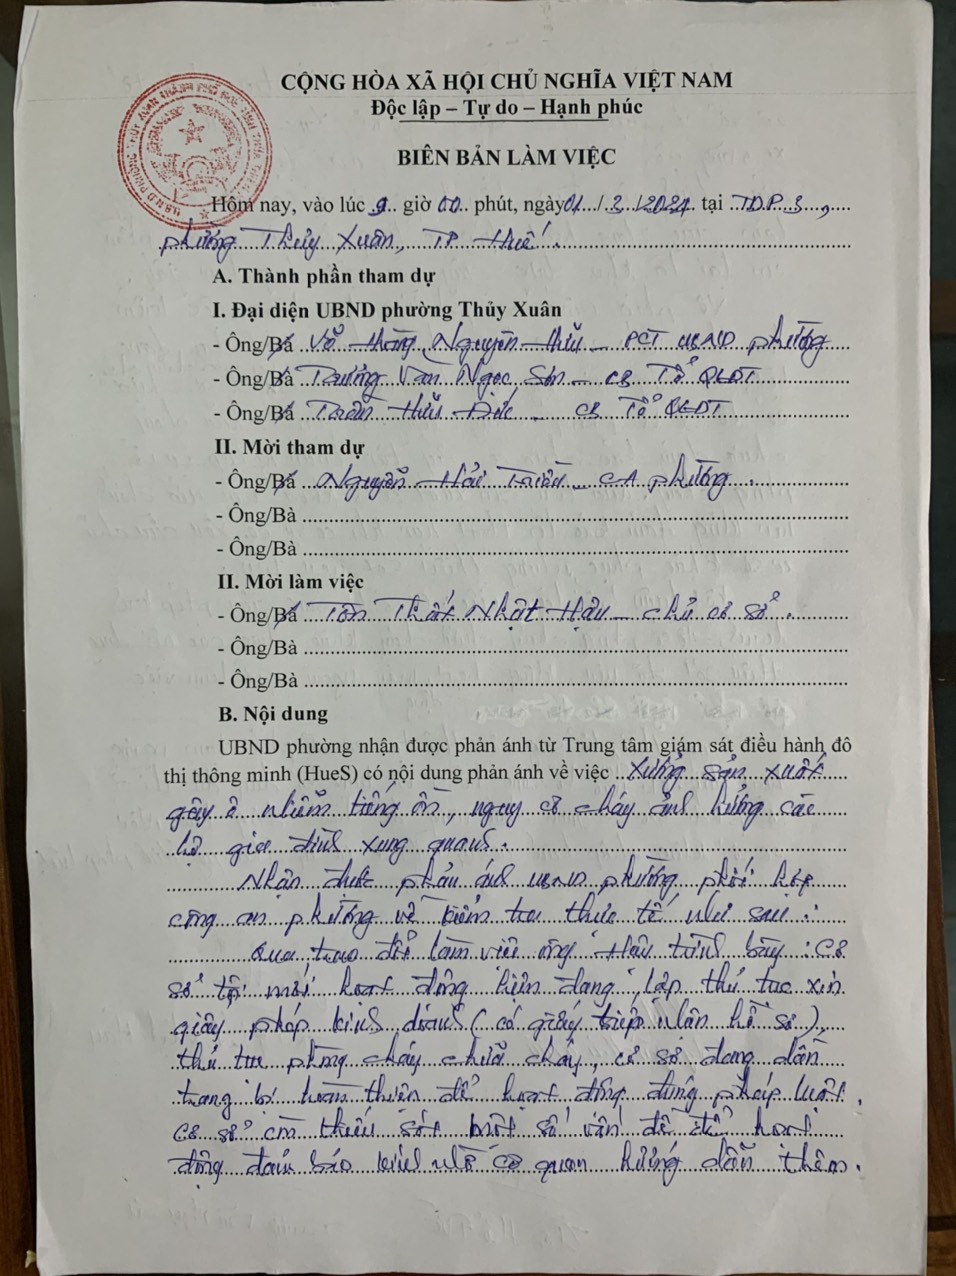 CỘNG HÒA XÃ HỘI CHỦ NGHĨA VIỆT NAM
Độc lập – Tự do – Hạnh phúc
BIÊN BẢN LÀM VIỆC
Hôm nay, vào lúc 9 giờ 00 phút, ngày 01/3/2024 tại TDP 3,
phường Thủy Xuân, TP Huế.
A. Thành phần tham dự
I. Đại diện UBND phường Thủy Xuân
- Ông/Bà Võ Hoàng Nguyên Hữu – PCT UBND phường
- Ông/Bà Trương Văn Ngọc Sơn – CB Tổ QLĐT
- Ông/Bà Trần Hữu Đức – CB Tổ QLĐT
II. Mời tham dự
- Ông/Bà Nguyễn Hải Triều – CA phường.
- Ông/Bà
- Ông/Bà
II. Mời làm việc
- Ông/Bà Tôn Thất Nhật Hậu – chủ cơ sở.
- Ông/Bà
- Ông/Bà
B. Nội dung
UBND phường nhận được phản ánh từ Trung tâm giám sát điều hành đô
thị thông minh (HueS) có nội dung phản ánh về việc xưởng sản xuất
gây ô nhiễm tiếng ồn, nguy cơ cháy ảnh hưởng các
hộ gia đình xung quanh.
Nhận được phản ánh UBND phường phối hợp
công an phường về kiểm tra thực tế như sau:
Qua trao đổi làm việc ông Hậu trình bày: Cơ
sở mới hoạt động hiện đang lập thủ tục xin
giấy phép kinh doanh (có giấy tiếp nhận hồ sơ),
thủ tục phòng cháy chữa cháy, cơ sở đang dần
trang bị hoàn thiện để hoạt động đúng pháp luật.
Cơ sở còn thiếu sót một số vấn đề để hoạt
động đảm bảo kính nhờ cơ quan hướng dẫn thêm.